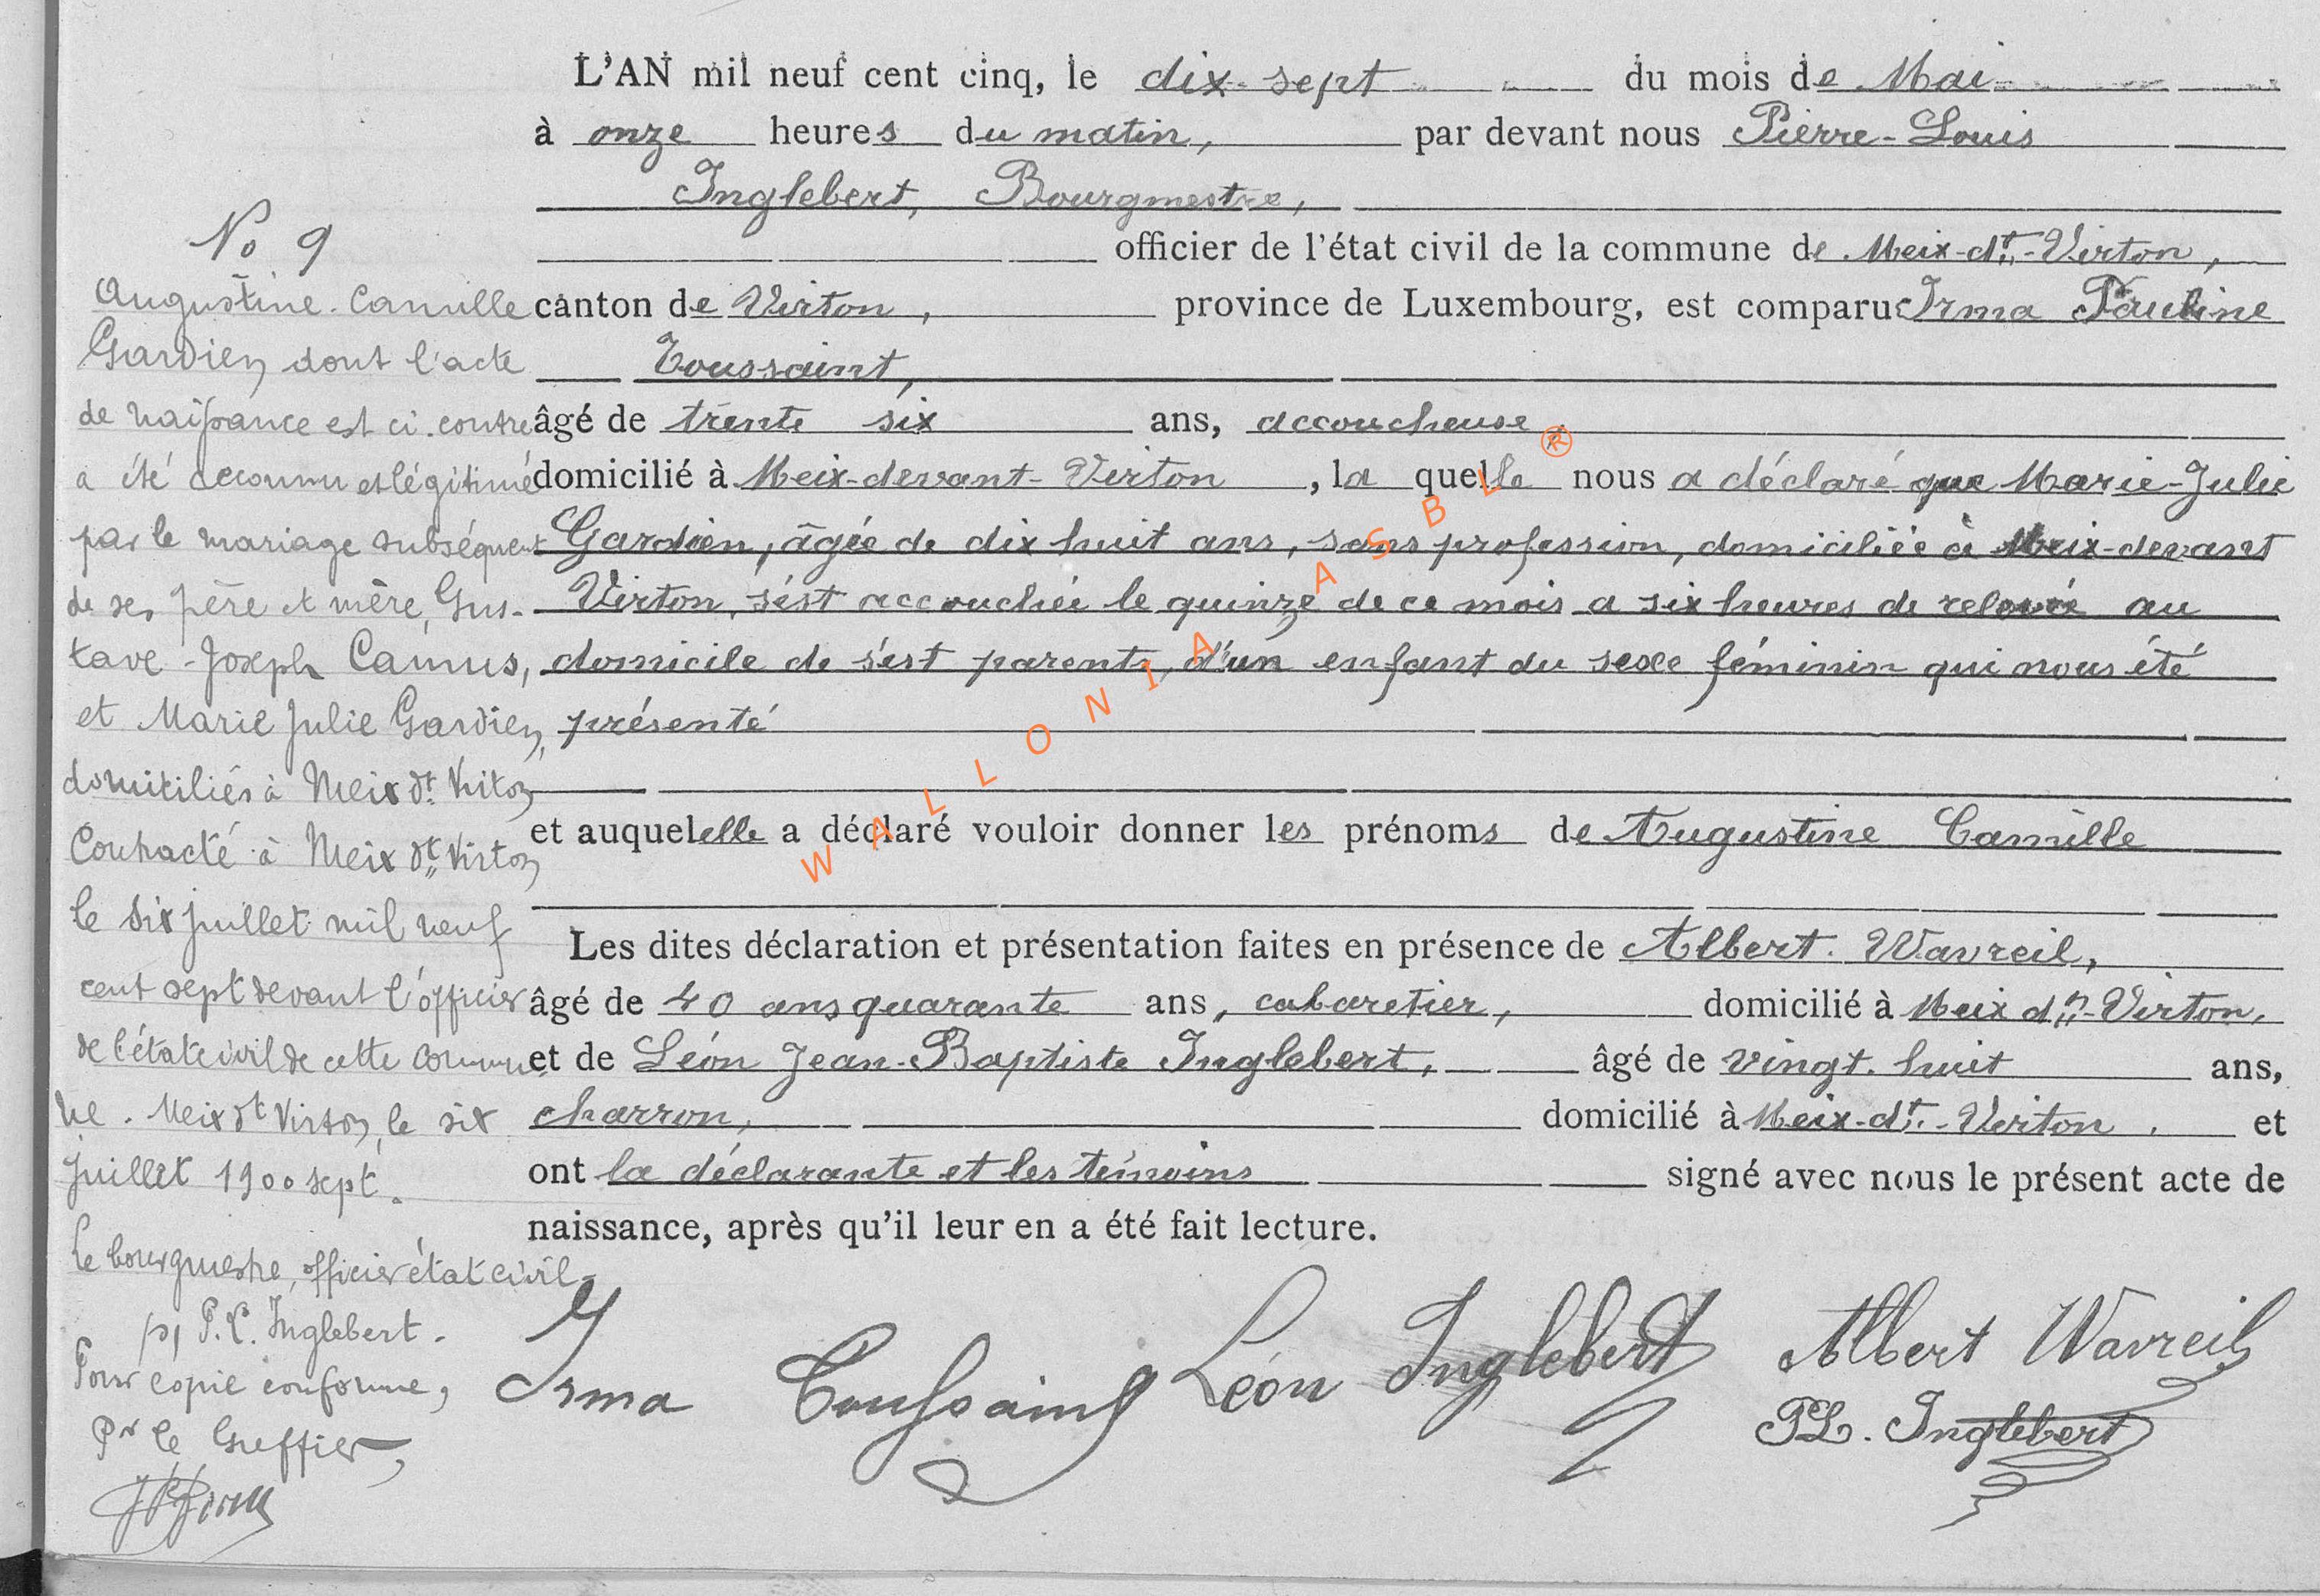 L'AN mil neuf cent cinq, le dix-sept du mois de Mai
à onze heures du matin, par devant nous Pierre-Louis
Inglebert, Bourgmestre,
officier de l'état civil de la commune de Meix-dt-Virton,
canton de Virton, province de Luxembourg, est comparue Irma Pauline
Toussaint,
âgé de trente six ans, accoucheuse
domicilié à Meix-devant-Virton, la quelle nous a déclaré que Marie-Julie
Gardien, âgée de dix huit ans, sans profession, domiciliée à Meix-devant
Virton, s'est accouchée le quinze de ce mois a six heures de relevée au
domicile de s'est parents, d'un enfant du sexe féminin qui nous été
présenté
et auquel elle a déclaré vouloir donner les prénoms de Augustine Camille
Les dites déclaration et présentation faites en présence de Albert Wavreil,
âgé de 40 ans quarante ans, cabaretier, domicilié à Meix dt-Virton,
et de Léon Jean-Baptiste Inglebert, âgé de vingt-huit ans,
charron, domicilié à Meix-dt-Virton, et
ont la déclarante et les témoins signé avec nous le présent acte de
naissance, après qu'il leur en a été fait lecture.
Irma Toussaint Léon Inglebert Albert Wavreil
PL. Inglebert
No 9
Augustine-Camille
Gardien dont l'acte
de naissance est ci-contre
a été reconnu et légitimé
par le mariage subséquent
de ses père et mère, Gus-
tave-Joseph Camus,
et Marie Julie Gardien,
domiciliés à Meix dt Virton
Contracté à Meix dt Virton
le six juillet mil neuf
cent sept devant l'officier
de l'état civil de cette commu-
ne. Meix dt Virton, le six
juillet 1900 sept.
Le bourgmestre, officier état civil
P.L. Inglebert.
Pour copie conforme,
Pr le Greffier,
WALLONIA ASBL ®